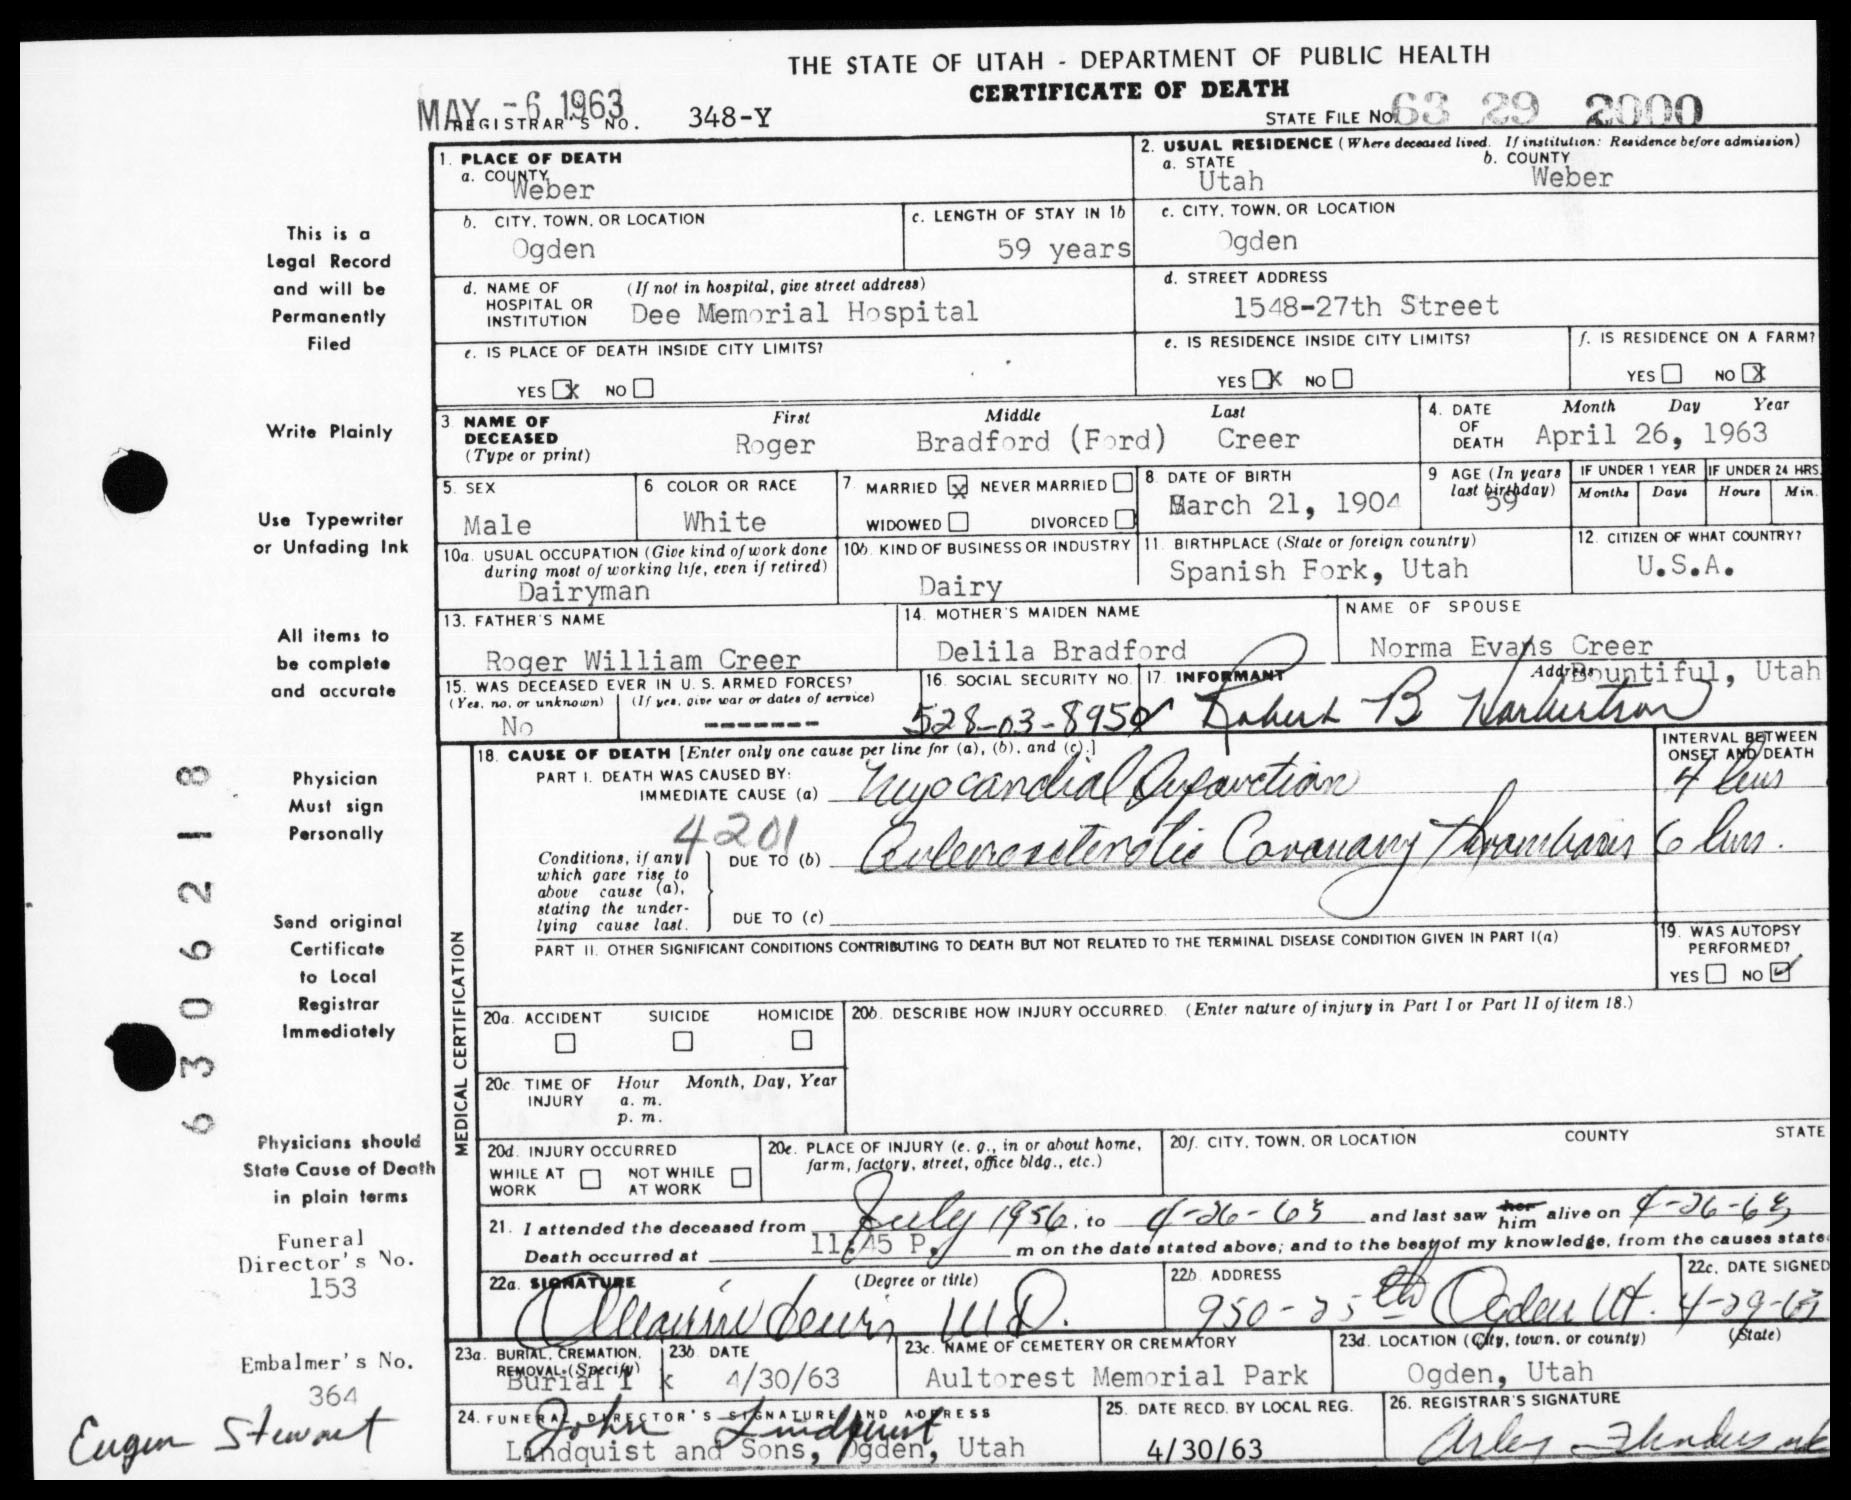 THE STATE OF UTAH - DEPARTMENT OF PUBLIC HEALTH
CERTIFICATE OF DEATH
MAY -6 1963
REGISTRAR'S NO. 348-Y
STATE FILE NO. 63 29 2000
1. PLACE OF DEATH
a. COUNTY
Weber
2. USUAL RESIDENCE (Where deceased lived. If institution: Residence before admission)
a. STATE b. COUNTY
Utah Weber
b. CITY, TOWN, OR LOCATION
Ogden
c. LENGTH OF STAY IN 1b
59 years
c. CITY, TOWN, OR LOCATION
Ogden
d. NAME OF HOSPITAL OR INSTITUTION (If not in hospital, give street address)
Dee Memorial Hospital
d. STREET ADDRESS
1548-27th Street
e. IS PLACE OF DEATH INSIDE CITY LIMITS?
YES X NO
e. IS RESIDENCE INSIDE CITY LIMITS?
YES X NO
f. IS RESIDENCE ON A FARM?
YES NO X
3 NAME OF DECEASED (Type or print)
First Middle Last
Roger Bradford (Ford) Creer
4. DATE OF DEATH Month Day Year
April 26, 1963
5. SEX
Male
6 COLOR OR RACE
White
7. MARRIED X NEVER MARRIED
WIDOWED DIVORCED
8. DATE OF BIRTH
March 21, 1904
9 AGE (In years last birthday)
59
IF UNDER 1 YEAR IF UNDER 24 HRS.
Months Days Hours Min.
10a. USUAL OCCUPATION (Give kind of work done during most of working life, even if retired)
Dairyman
10b. KIND OF BUSINESS OR INDUSTRY
Dairy
11. BIRTHPLACE (State or foreign country)
Spanish Fork, Utah
12. CITIZEN OF WHAT COUNTRY?
U.S.A.
13. FATHER'S NAME
Roger William Creer
14. MOTHER'S MAIDEN NAME
Delila Bradford
NAME OF SPOUSE
Norma Evans Creer
15. WAS DECEASED EVER IN U. S. ARMED FORCES?
(Yes, no, or unknown) (If yes, give war or dates of service)
No -------
16. SOCIAL SECURITY NO.
528-03-8952
17. INFORMANT Address
Bountiful, Utah
Robert B Harbertson
18. CAUSE OF DEATH [Enter only one cause per line for (a), (b), and (c).]
PART I. DEATH WAS CAUSED BY:
IMMEDIATE CAUSE (a) Myocardial Infarction
INTERVAL BETWEEN ONSET AND DEATH
4 hrs
4201
Conditions, if any, which gave rise to above cause (a), stating the underlying cause last.
DUE TO (b) Coronary Thrombosis 6 hrs.
DUE TO (c)
PART II. OTHER SIGNIFICANT CONDITIONS CONTRIBUTING TO DEATH BUT NOT RELATED TO THE TERMINAL DISEASE CONDITION GIVEN IN PART I(a)
19. WAS AUTOPSY PERFORMED?
YES NO ✓
MEDICAL CERTIFICATION
20a. ACCIDENT SUICIDE HOMICIDE
20b. DESCRIBE HOW INJURY OCCURRED. (Enter nature of injury in Part I or Part II of item 18.)
20c. TIME OF INJURY Hour Month, Day, Year
a. m.
p. m.
20d. INJURY OCCURRED
WHILE AT WORK NOT WHILE AT WORK
20e. PLACE OF INJURY (e. g., in or about home, farm, factory, street, office bldg., etc.)
20f. CITY, TOWN, OR LOCATION COUNTY STATE
21. I attended the deceased from July 1956, to 4-26-63 and last saw her him alive on 4-26-63
Death occurred at 11:45 P. m on the date stated above; and to the best of my knowledge, from the causes state
22a. SIGNATURE (Degree or title)
Lewis M.D.
22b. ADDRESS
950-25th Ogden Ut.
22c. DATE SIGNED
4-29-63
23a. BURIAL, CREMATION, REMOVAL (Specify)
Burial
23b DATE
4/30/63
23c. NAME OF CEMETERY OR CREMATORY
Aultorest Memorial Park
23d. LOCATION (City, town, or county) (State)
Ogden, Utah
24. FUNERAL DIRECTOR'S SIGNATURE AND ADDRESS
John Lindquist
Lindquist and Sons, Ogden, Utah
25. DATE RECD. BY LOCAL REG.
4/30/63
26. REGISTRAR'S SIGNATURE
This is a
Legal Record
and will be
Permanently
Filed
Write Plainly
Use Typewriter
or Unfading Ink
All items to
be complete
and accurate
Physician
Must sign
Personally
Send original
Certificate
to Local
Registrar
Immediately
Physicians should
State Cause of Death
in plain terms
Funeral
Director's No.
153
Embalmer's No.
364
Eugene Stewart
6 3 0 6 2 1 8